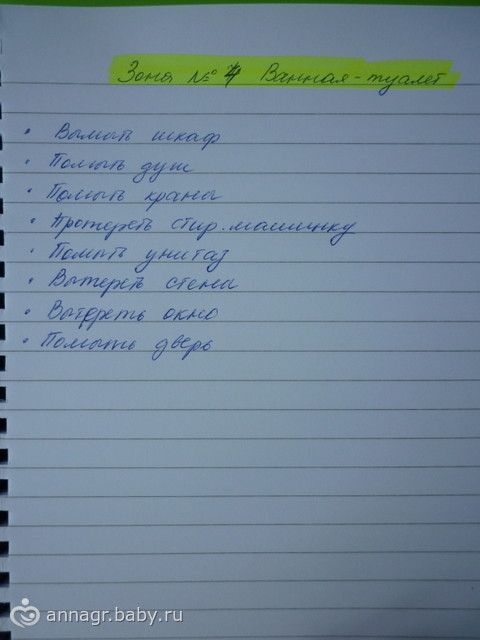 Зона № 4 Ванная-туалет
• Вымыть шкаф
• Помыть душ
• Помыть краны
• Протереть стир. машинку
• Помыть унитаз
• Вытереть стены
• Вытереть окно
• Помыть дверь
annagr.baby.ru